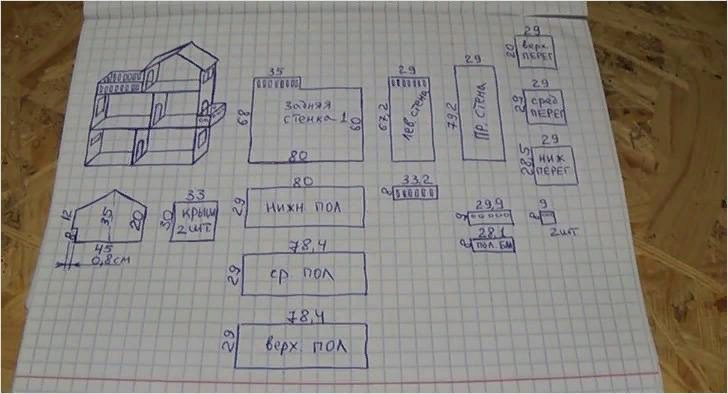 35
68
Задняя
стенка 1
60
80
29
67,2
лев. стена
29
79,2
пр. стена
29
20
верх.
перег
29
29
сред
перег
29
28,5
ниж
перег
12
8
35
20
45
0,8см
33
30
крыш
2шт.
80
29
нижн. пол
33,2
8
29,9
9
28,1
8
пол. бал
9
8
2шт
78,4
29
ср. пол
78,4
29
верх. пол